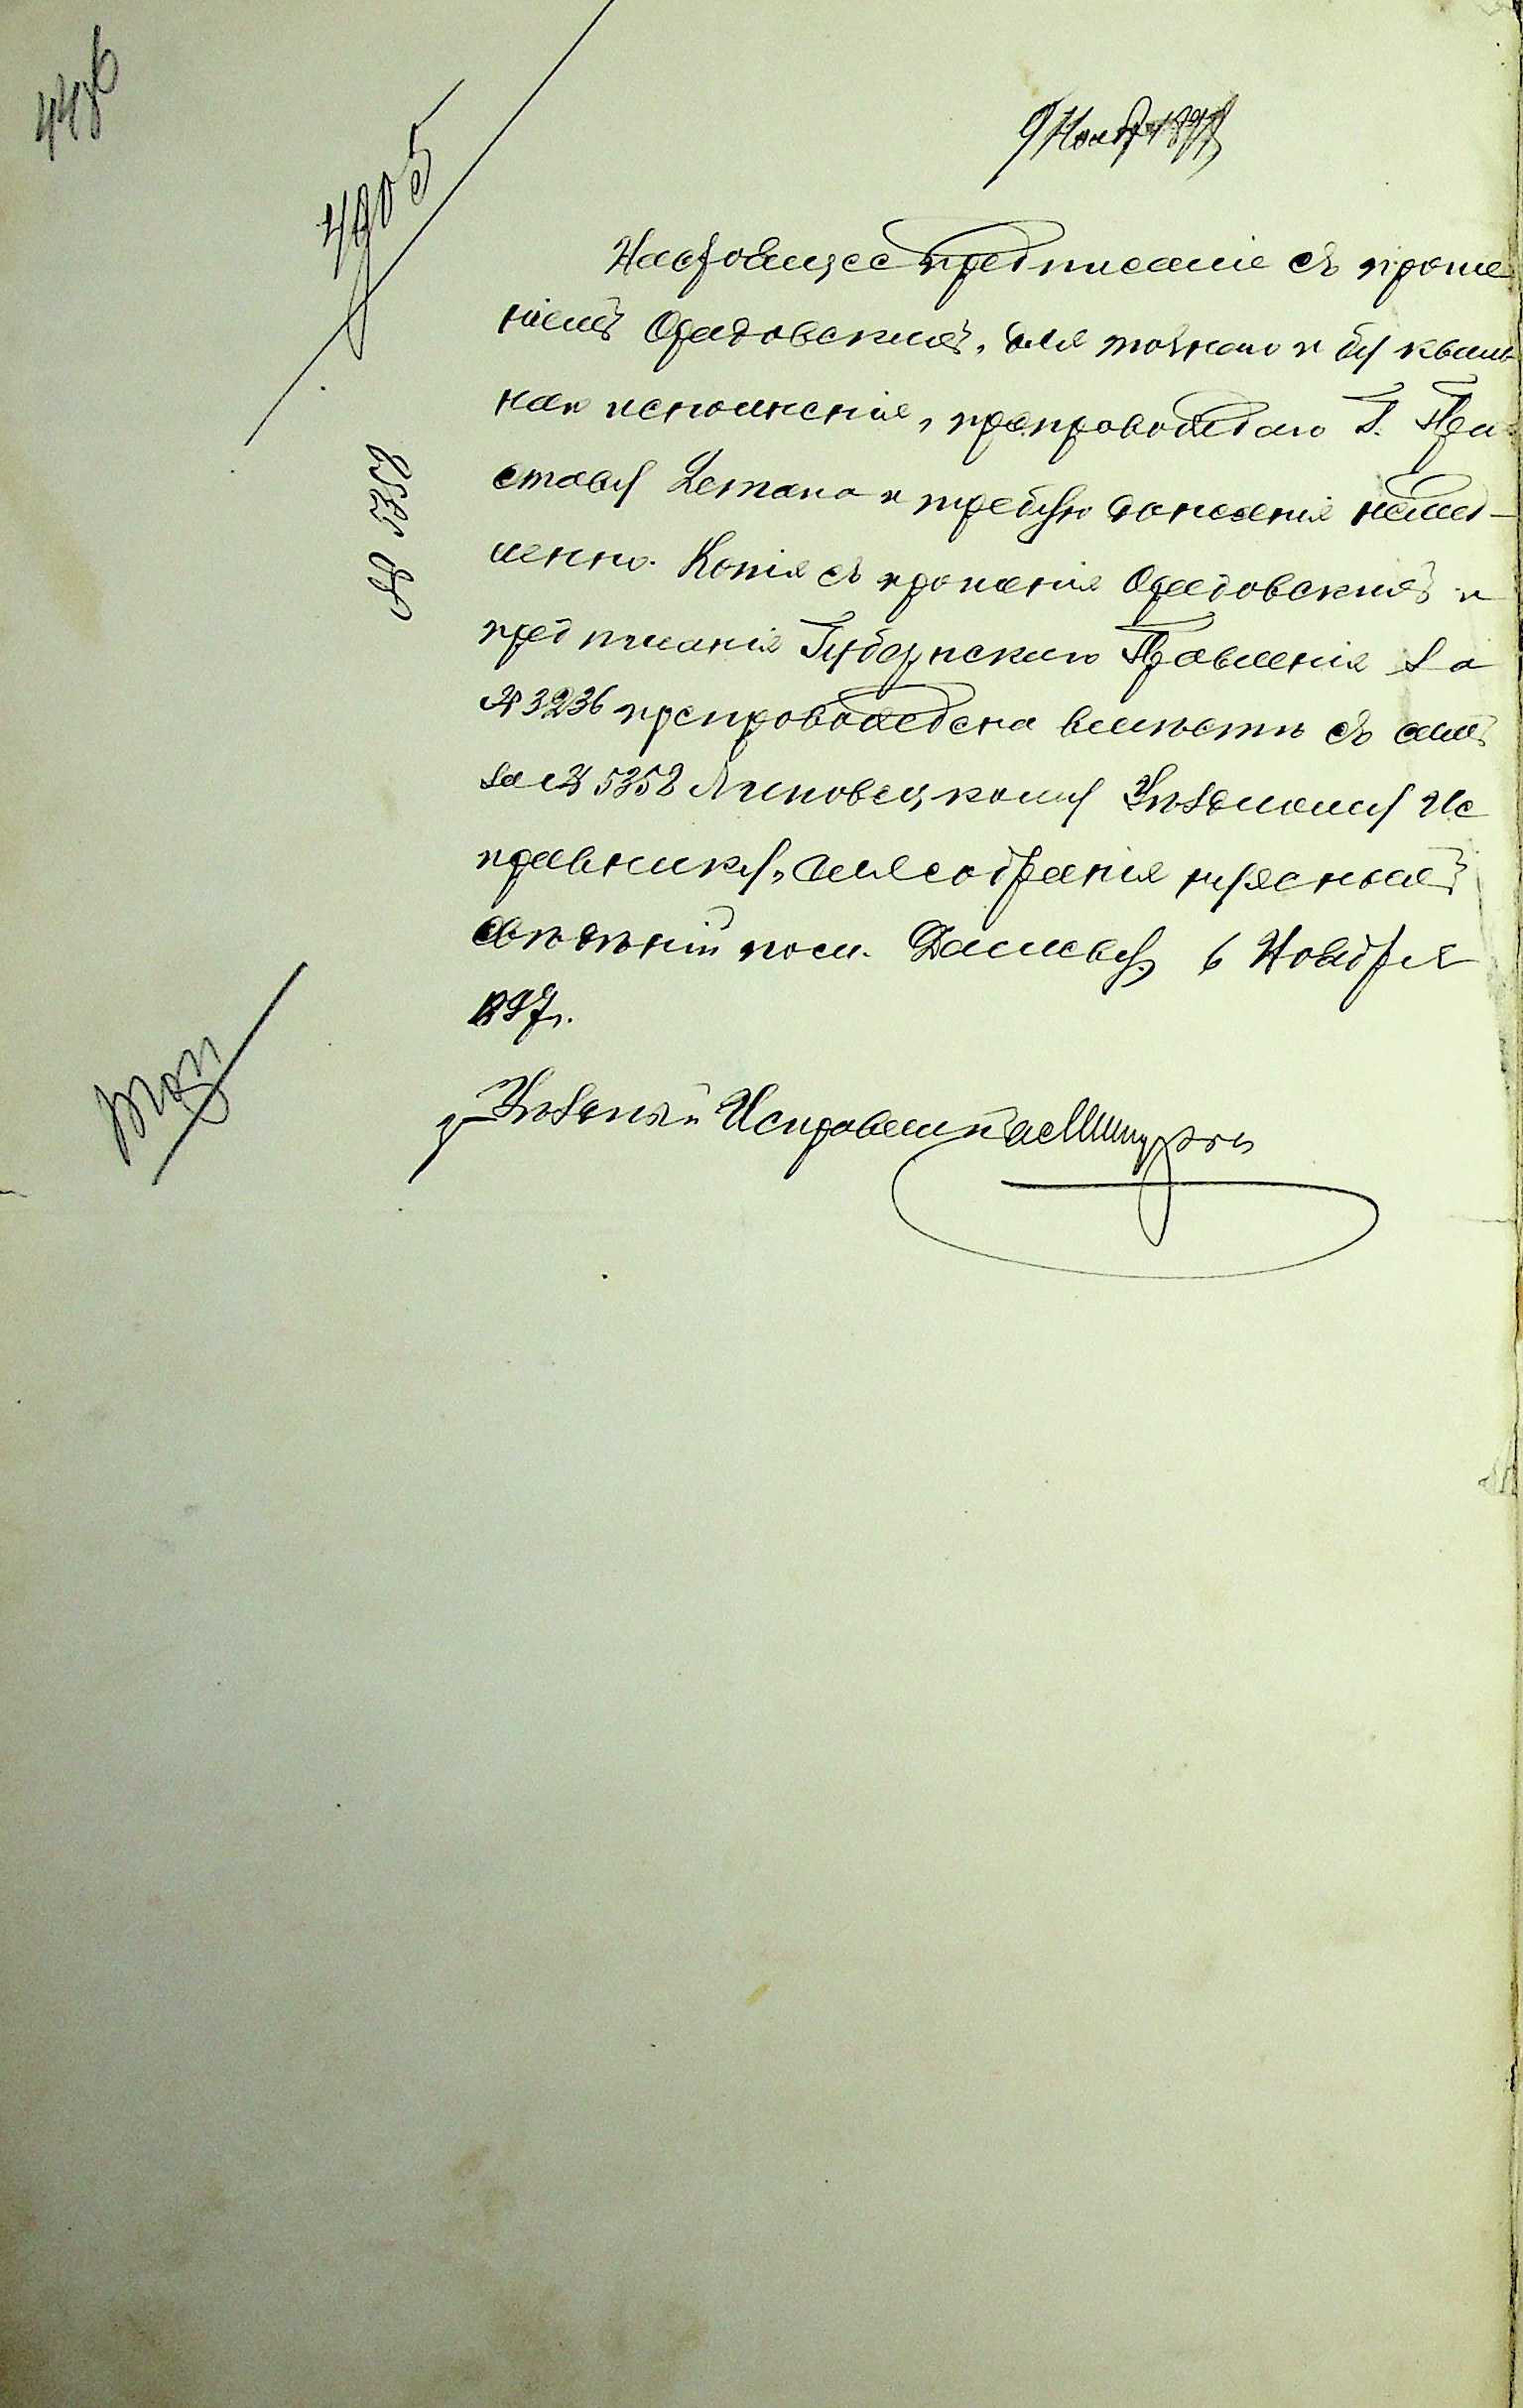 4905
9 Ноябр 1897
Настоящее предписаніе съ проше
ніемъ Орадовскихъ, для точнаго и букваль
наго исполненія, препровождаю Г. При
ставу 2 стана и требую донесенія немед-
ленно. Копія съ прошенія Орадовскихъ и
предписанія Губернскаго Правленія за
№ 3236 препровождена вмѣстѣ съ симъ
за № 5358 Липовецкому Уѣздному Ис
правнику, для собранія нужныхъ
свѣдѣній пом. Дашевъ, 6 Ноября
1897 г.
№ 5358
Уѣздный Исправникъ